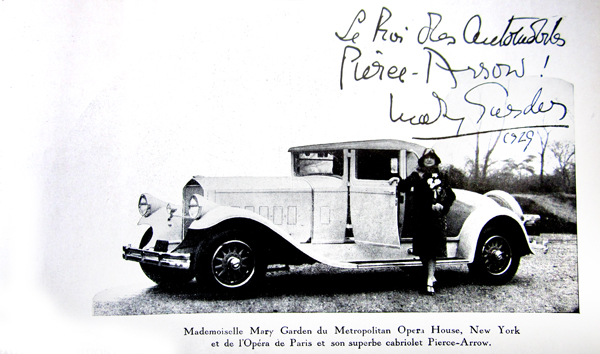 Le Roi des Automobiles
Pierce-Arrow!
Mary Garden
1929
Mademoiselle Mary Garden du Metropolitan Opera House, New York
et de l'Opéra de Paris et son superbe cabriolet Pierce-Arrow.